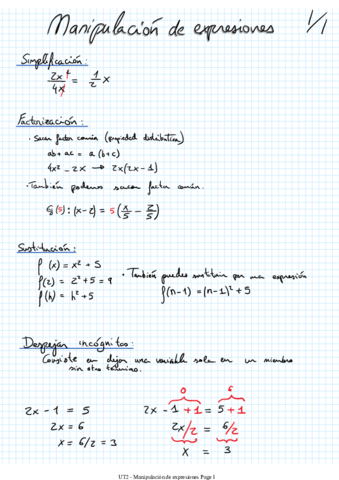 Manipulación de expresiones 1/1
Simplificación:
2x²/4x = 1/2 x
Factorización:
· Sacar factor común (propiedad distributiva)
ab + ac = a (b+c)
4x² - 2x → 2x(2x - 1)
· También podemos sacar factor común.
Ej (5): (x-2) = 5(x/5 - 2/5)
Sustitución:
f(x) = x² + 5
f(2) = 2² + 5 = 9
f(h) = h² + 5
· También puedes sustituir por una expresión
f(n-1) = (n-1)² + 5
Despejar incógnitas:
Consiste en dejar una variable sola en un miembro
sin otro término.
2x - 1 = 5
2x = 6
x = 6/2 = 3
0 6
2x - 1 + 1 = 5 + 1
2x/2 = 6/2
x = 3
UT2 - Manipulación de expresiones Page 1